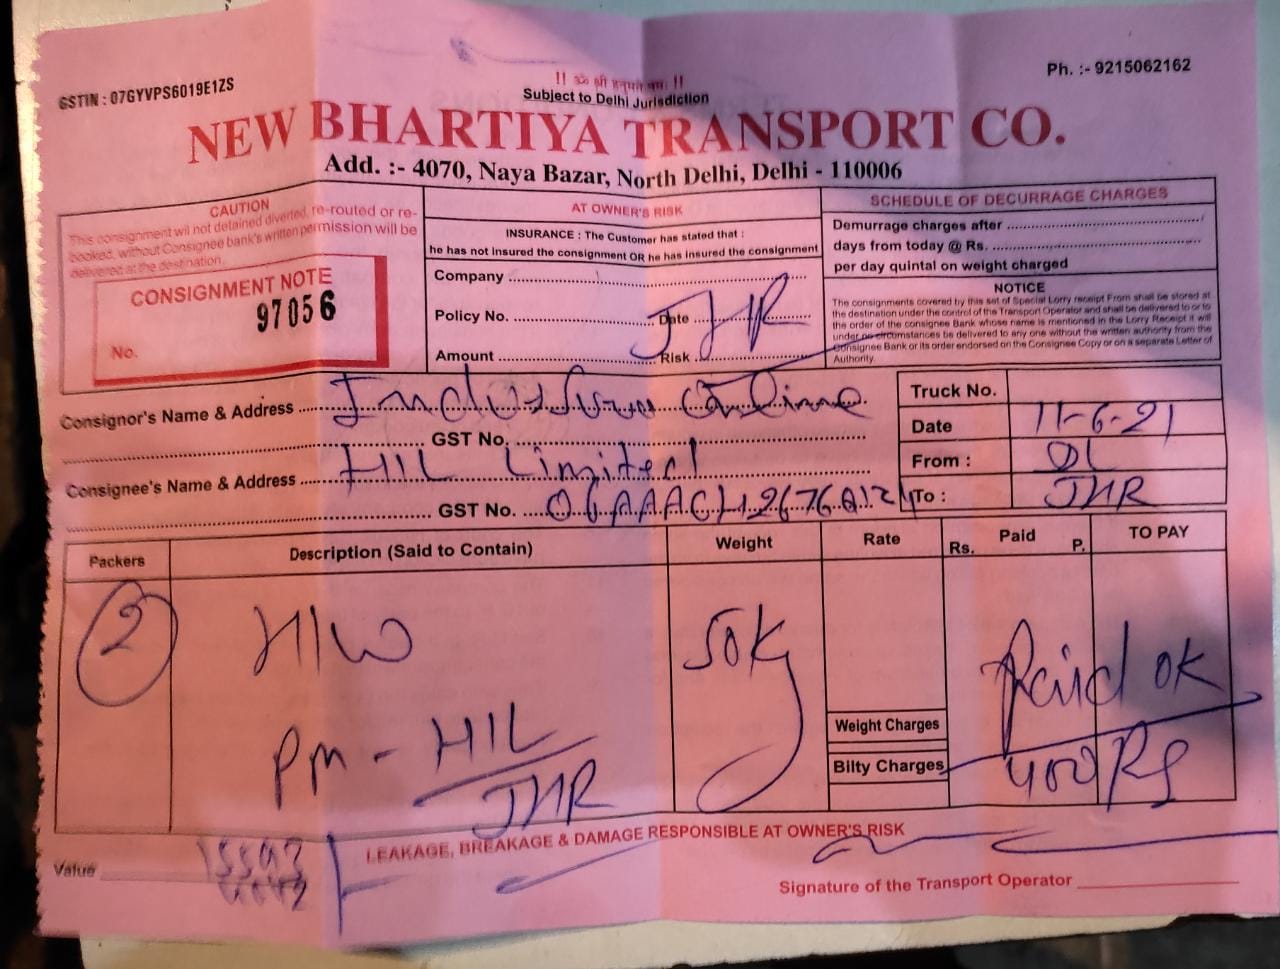 GSTIN : 07GYVPS6019E1ZS
!! ॐ श्री हनुमते नमः !!
Subject to Delhi Jurisdiction
Ph. :- 9215062162
NEW BHARTIYA TRANSPORT CO.
Add. :- 4070, Naya Bazar, North Delhi, Delhi - 110006
CAUTION
This consignment wil not detained diverted, re-routed or re-
booked, without Consignee bank's written permission will be
delivered at the destination.
CONSIGNMENT NOTE
97056
No.
AT OWNER'S RISK
INSURANCE : The Customer has stated that :
he has not insured the consignment OR he has insured the consignment
Company
Policy No. Date
JHR
Amount Risk
SCHEDULE OF DECURRAGE CHARGES
Demurrage charges after
days from today @ Rs.
per day quintal on weight charged
NOTICE
The consignments covered by this set of Special Lorry receipt From shall be stored at
the destination under the control of the Transport Operator and shall be delivered to or to
the order of the consignee Bank whose name is mentioned in the Lorry Receipt it will
under no circumstances be delivered to any one without the written authority from the
Consignee Bank or its order endorsed on the Consignee Copy or on a separate Letter of
Authority.
Consignor's Name & Address
GST No.
Consignee's Name & Address HIL Limited
GST No. 06AAACH2676
Truck No.
Date 11-6-21
From : DL
To : JHR
Packers Description (Said to Contain) Weight Rate Rs. Paid P. TO PAY
2 HIW 50K Paid OK
Weight Charges
PM - HIL
JHR
Bilty Charges 400 Rs
LEAKAGE, BREAKAGE & DAMAGE RESPONSIBLE AT OWNER'S RISK
Value
Signature of the Transport Operator